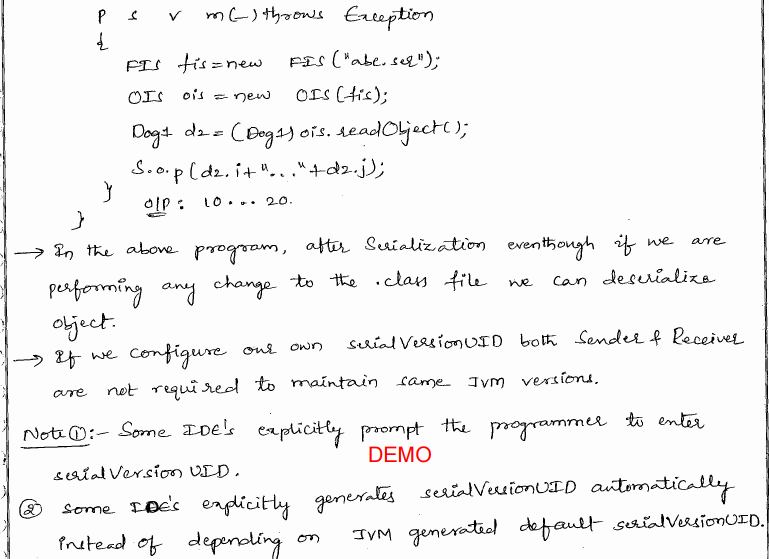 P S V m(-) throws Exception
{
FIS fis = new FIS("abc.ser");
OIS ois = new OIS(fis);
Dog1 d2 = (Dog1) ois.readObject();
S.o.p(d2.i+"..."+d2.j);
}
O/P: 10...20.
}
→ In the above program, after Serialization eventhough if we are
performing any change to the .class file we can deserialize
object.
→ If we configure our own serialVersionUID both Sender & Receiver
are not required to maintain same JVM versions.
Note①:- Some IDE's explicitly prompt the programmer to enter
DEMO
serialVersionUID.
② Some IDE's explicitly generates serialVersionUID automatically
instead of depending on JVM generated default serialVersionUID.